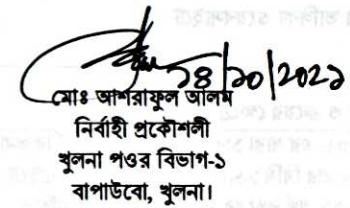 ১৪/১০/২০২১
মোঃ আশরাফুল আলম
নির্বাহী প্রকৌশলী
খুলনা পওর বিভাগ-১
বাপাউবো, খুলনা।